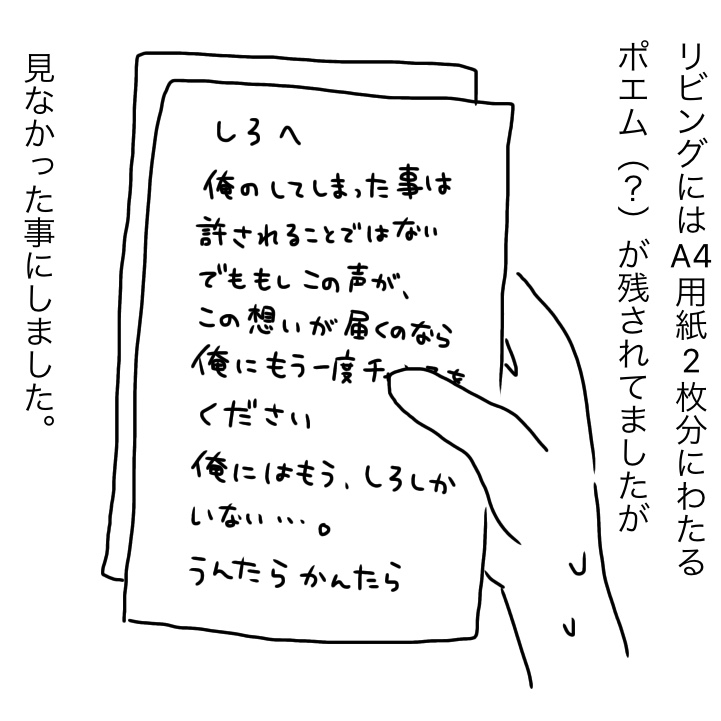 リビングにはA4用紙2枚分にわたる
ポエム（？）が残されてましたが
しろへ
俺のしてしまった事は
許されることではない
でももしこの声が、
この想いが届くのなら
俺にもう一度チ を
ください
俺にはもう、しろしか
いない…。
うんたらかんたら
見なかった事にしました。